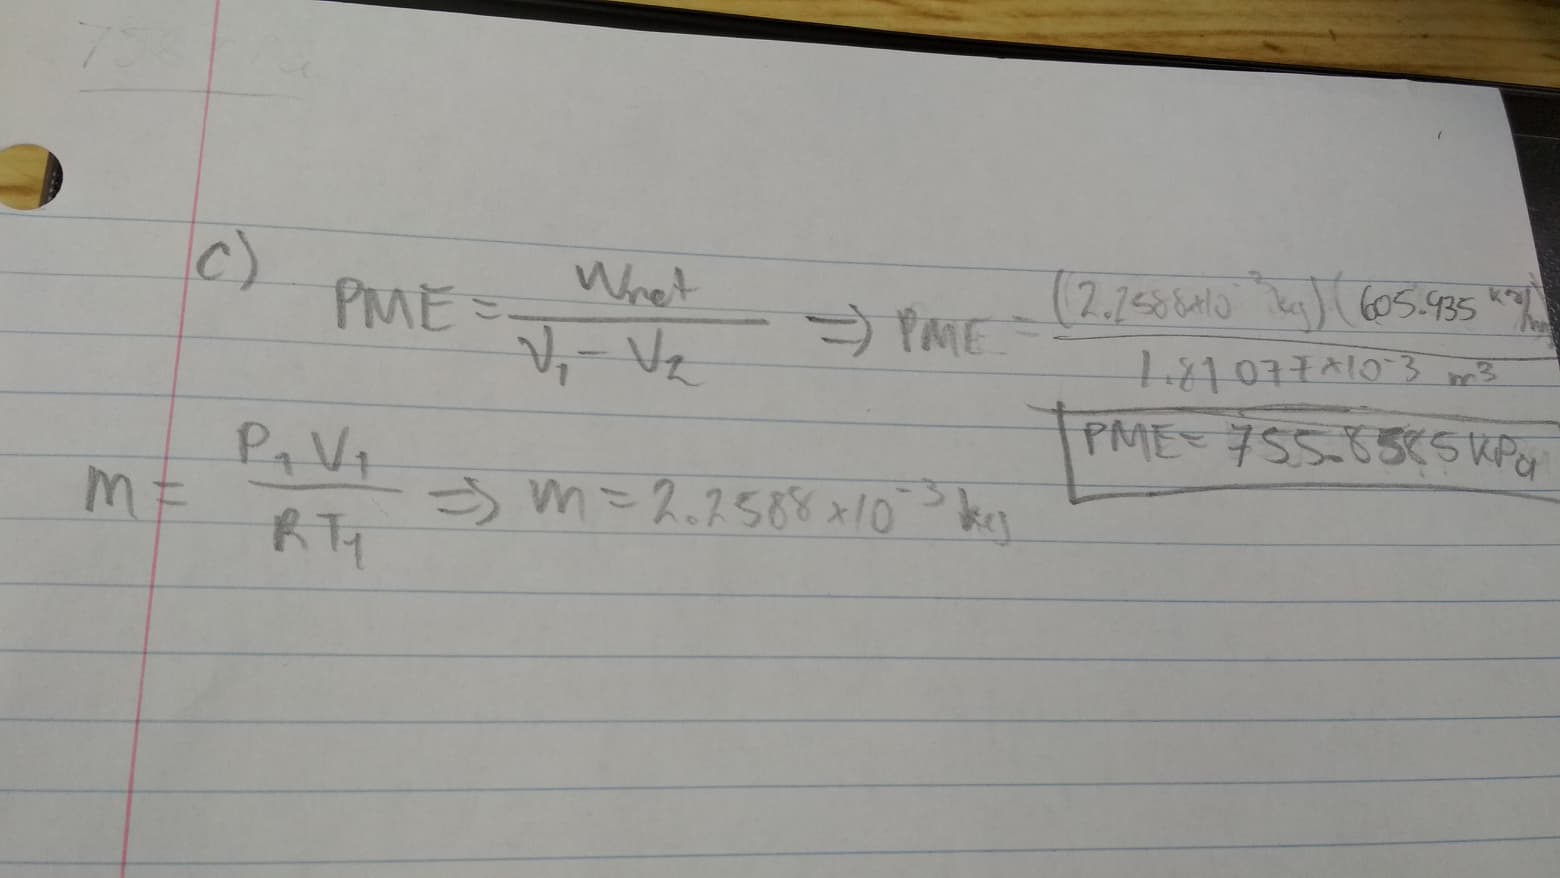 c)
PME = Wnet / V₁ - V₂ ⇒ PME = (2.2588x10⁻³kg)(605.935 / 1.81077x10⁻³ m³
PME = 755.8385 KPa
m = P₁ V₁ / R T₁ ⇒ m = 2.2588x10⁻³ kg